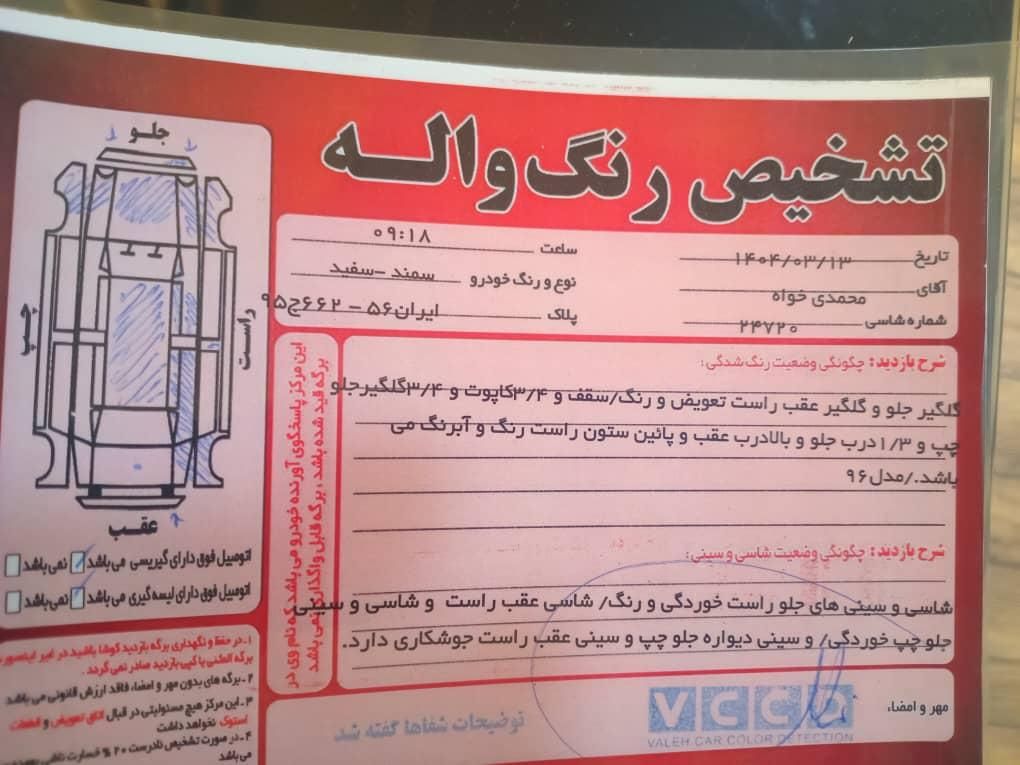 تشخیص رنگ واله
تاریخ ۱۴۰۴/۰۳/۱۳
ساعت ۰۹:۱۸
آقای محمدی خواه
نوع و رنگ خودرو سمند -سفید
شماره شاسی ۲۴۷۲۰
پلاک ایران۵۶ – ۶۶۲ج۹۵
شرح بازدید: چگونگی وضعیت رنگ شدگی:
گلگیر جلو و گلگیر عقب راست تعویض و رنگ/سقف و ۳/۴کاپوت و ۳/۴گلگیرجلو
چپ و ۱/۳درب جلو و بالادرب عقب و پائین ستون راست رنگ و آبرنگ می
باشد./مدل۹۶
شرح بازدید: چگونگی وضعیت شاسی و سینی:
شاسی و سینی های جلو راست خوردگی و رنگ/ شاسی عقب راست و شاسی و سینی
جلو چپ خوردگی/ و سینی دیواره جلو چپ و سینی عقب راست جوشکاری دارد.
مهر و امضاء:
VCCD
VALEH CAR COLOR DETECTION
توضیحات شفاها گفته شد
این مرکز پاسخگوی آورنده خودرو می باشد که نام وی در
برگه قید شده باشد ، برگه قابل واگذاری نمی باشد
جلو
چپ
راست
عقب
اتومبیل فوق دارای گریسی می باشد نمی باشد
اتومبیل فوق دارای لیسه گیری می باشد نمی باشد
۱ـ در حفظ و نگهداری برگه بازدید کوشا باشید در غیر اینصورت
برگه المثنی یا کپی بازدید صادر نمی گردد.
۲ـ برگه های بدون مهر و امضاء، فاقد ارزش قانونی می باشد
۳ـ این مرکز هیچ مسئولیتی در قبال اتاق تعویض و قطعات
استوک نخواهد داشت
۴ـ در صورت تشخیص نادرست ۲۰ % خسارت
می باشد